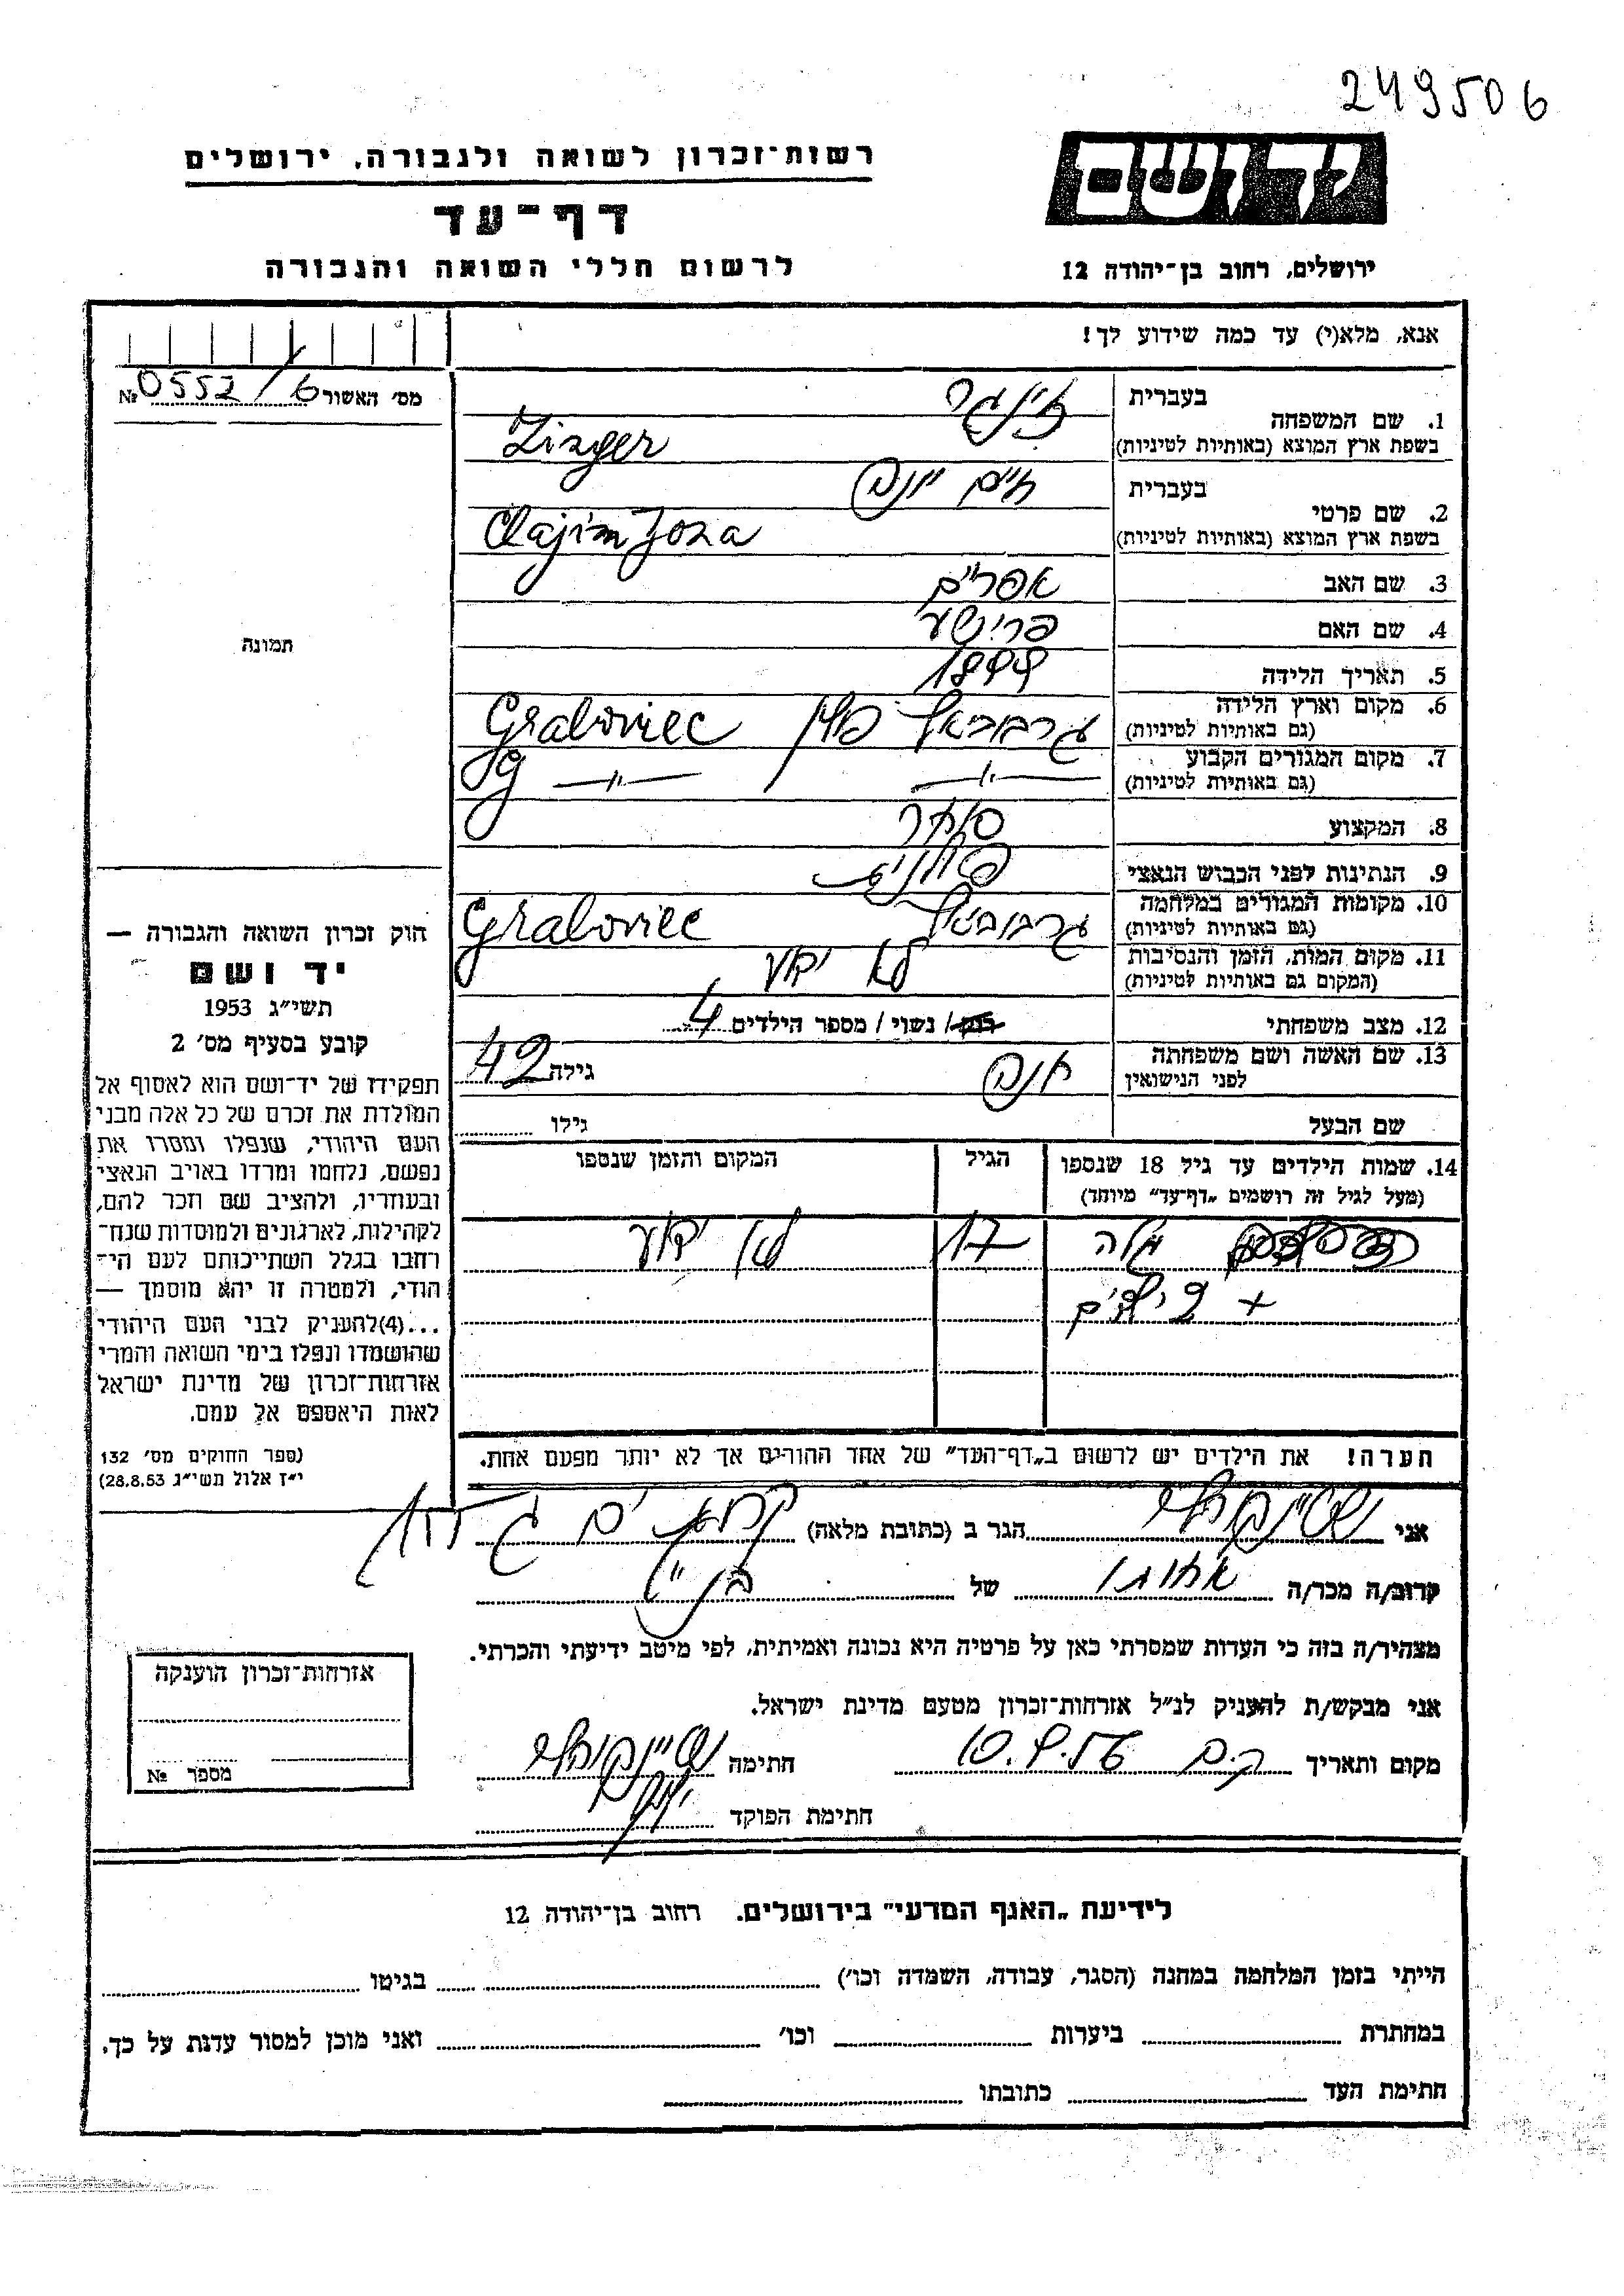 249506
יד ושם
ירושלים, רחוב בן־יהודה 12
רשות־זכרון לשואה ולגבורה, ירושלים
דף־עד
לרשום חללי השואה והגבורה
אנא, מלא(י) עד כמה שידוע לך!
מס' האשור № 0552/6
תמונה
חוק זכרון השואה והגבורה —
יד ושם
תשי״ג 1953
קובע בסעיף מס' 2
תפקידו של יד־ושם הוא לאסוף אל
המולדת את זכרם של כל אלה מבני
העם היהודי, שנפלו ומסרו את
נפשם, נלחמו ומרדו באויב הנאצי
ובעוזריו, ולהציב שם וזכר להם,
לקהילות, לארגונים ולמוסדות שנח־
רחבו בגלל השתייכותם לעם הי־
הודי, ולמטרה זו יהא מוסמך —
...(4)להעניק לבני העם היהודי
שהושמדו ונפלו בימי השואה והמרי
אזרחות־זכרון של מדינת ישראל
לאות היאספם אל עמם.
(ספר החוקים מס' 132
י״ז אלול תשי״ג 28.8.53)
בעברית זינגר
1. שם המשפחה
בשפת ארץ המוצא (באותיות לטיניות) Zinger
בעברית חיים יונה
2. שם פרטי
בשפת ארץ המוצא (באותיות לטיניות) Chajim Jona
3. שם האב אפרים
4. שם האם
5. תאריך הלידה 1899
6. מקום וארץ הלידה פולין Graboviec
(גם באותיות לטיניות)
7. מקום המגורים הקבוע — " — — " —
(גם באותיות לטיניות)
8. המקצוע סוחר
9. הנתינות לפני הכבוש הנאצי פולנית
10. מקומות המגורים במלחמה Graboviec
(גם באותיות לטיניות)
11. מקום המות, הזמן והנסיבות לא ידוע
(המקום גם באותיות לטיניות)
12. מצב משפחתי רוק/ נשוי/ מספר הילדים 4
13. שם האשה ושם משפחתה חנה גילה 42
לפני הנישואין
שם הבעל גילו
14. שמות הילדים עד גיל 18 שנספו הגיל המקום והזמן שנספו
(מעל לגיל זה רושמים „דף־עד״ מיוחד)
17 לא ידוע
+ ילדים
הערה! את הילדים יש לרשום ב„דף־העד״ של אחד ההורים אך לא יותר מפעם אחת.
אני הגר ב (כתובת מלאה)
קרוב/ה מכר/ה של
מצהיר/ה בזה כי העדות שמסרתי כאן על פרטיה היא נכונה ואמיתית, לפי מיטב ידיעתי והכרתי.
אני מבקש/ת להעניק לנ״ל אזרחות־זכרון מטעם מדינת ישראל.
מקום ותאריך חתימה
חתימת הפוקד
אזרחות־זכרון הוענקה
מספר №
לידיעת „האגף המדעי״ בירושלים. רחוב בן־יהודה 12
הייתי בזמן המלחמה במחנה (הסגר, עבודה, השמדה וכו') בגיטו
במחתרת ביערות וכו' ואני מוכן למסור עדות על כך.
חתימת העד כתובתו